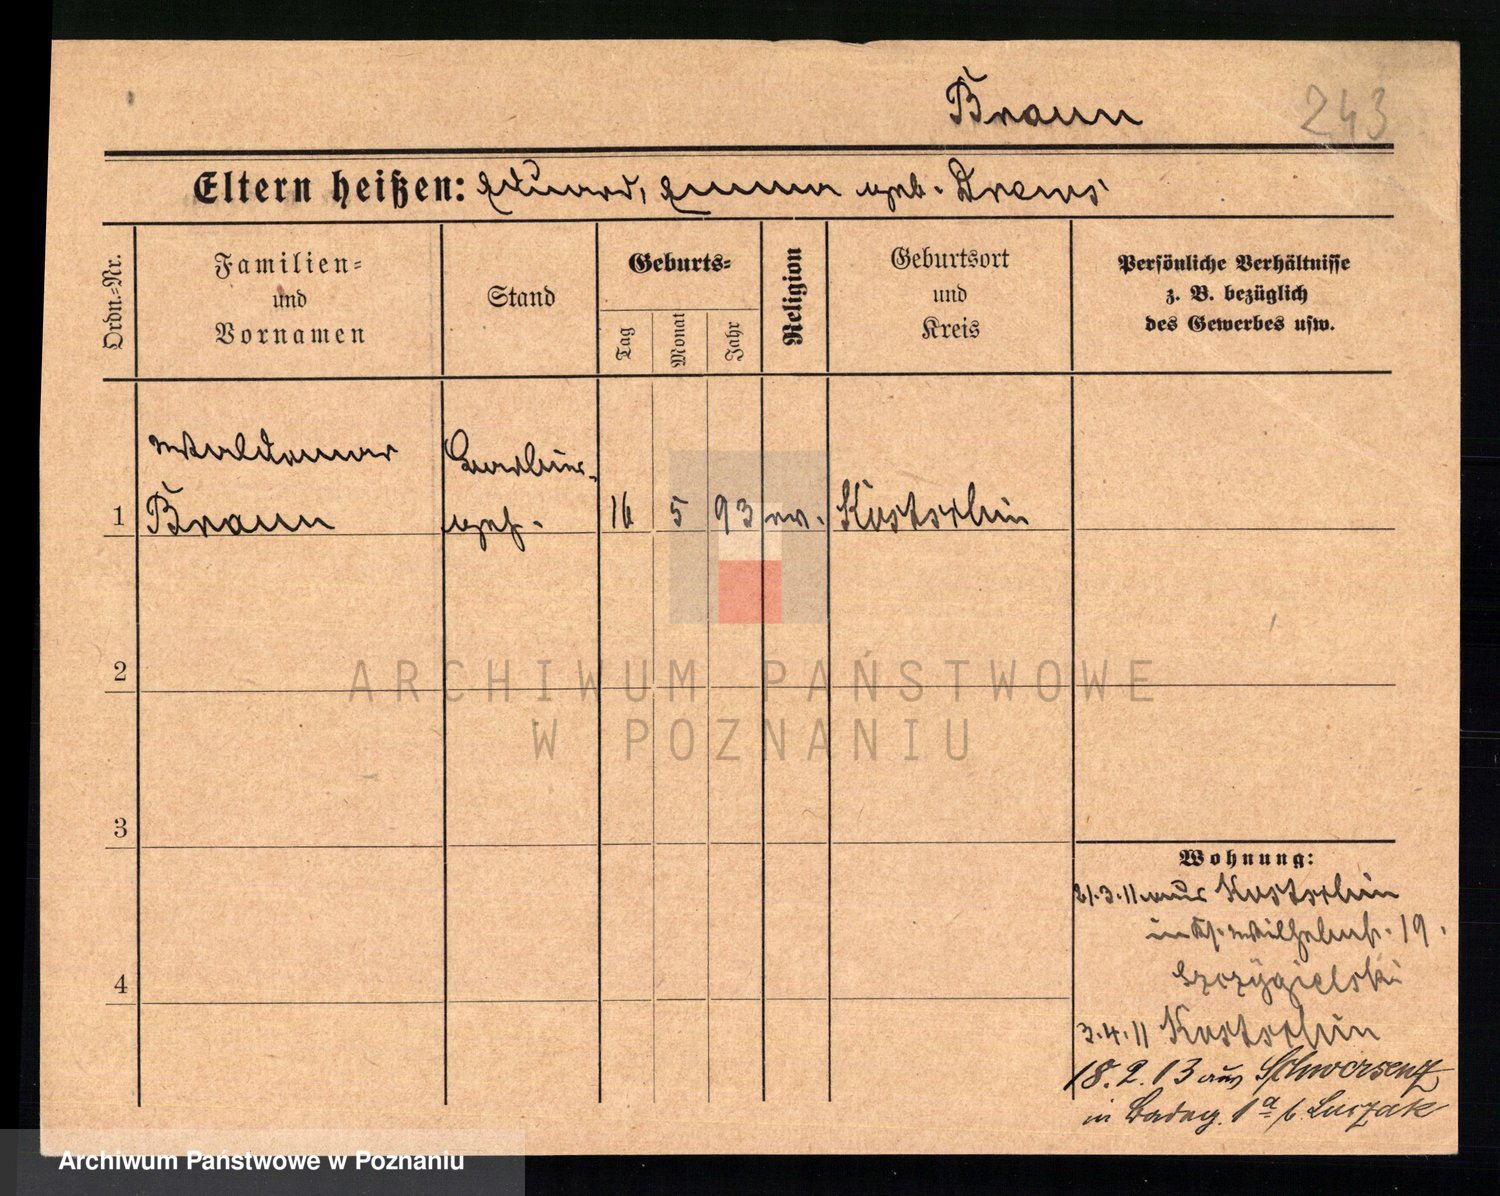 Braun 243
Eltern heißen: Eduard, Emma geb. Drews
Ordn.-Nr.
Familien-
und
Vornamen
Stand
Geburts-
Tag
Monat
Jahr
Religion
Geburtsort
und
Kreis
Persönliche Verhältnisse
z. B. bezüglich
des Gewerbes usw.
Waldemar
1 Braun
Barbier-
geh.
16 5 93 ev. Kostschin
2
3
4
Wohnung:
21.3.11 aus Kostschin
in 19.
Szczygielski
3.4.11 Kostschin
18.2.13 aus Schwersenz
in 1a b. Luczak
ARCHIWUM PAŃSTWOWE
W POZNANIU
Archiwum Państwowe w Poznaniu